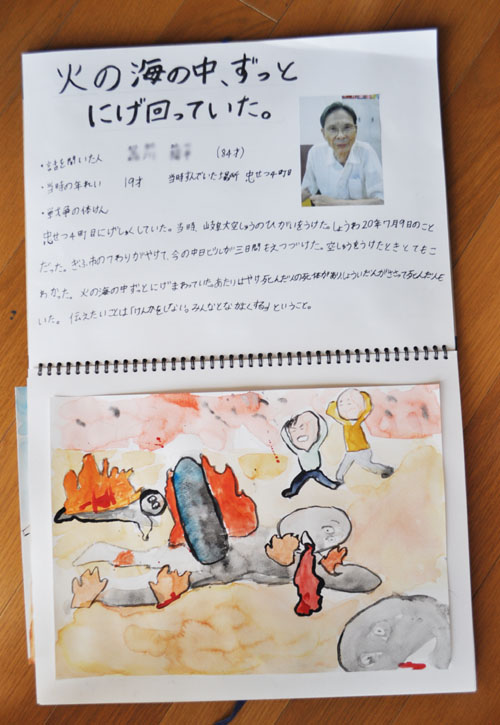 火の海の中、ずっと
にげ回っていた。
・話を聞いた人 (84才)
・当時の年れい 19才 当時すんでいた場所 忠せつ4町目
・戦争の体けん
忠せつ4町目にげしゅくしていた。当時、岐阜大空しゅうのひがいをうけた。しょうわ20年7月9日のこと
だった。ぎふ市のてわりがやけて、今の中日ビルが三日間もえつづけた。空しゅうをうけたときとてもこ
わかった。火の海の中ずっとにげまわっていた。あたりはやけ死んだ人の死体があり、しょういだんがささって死んだ人も
いた。伝えたいことは「けんかをしない。みんなとなかよくする。」ということ。